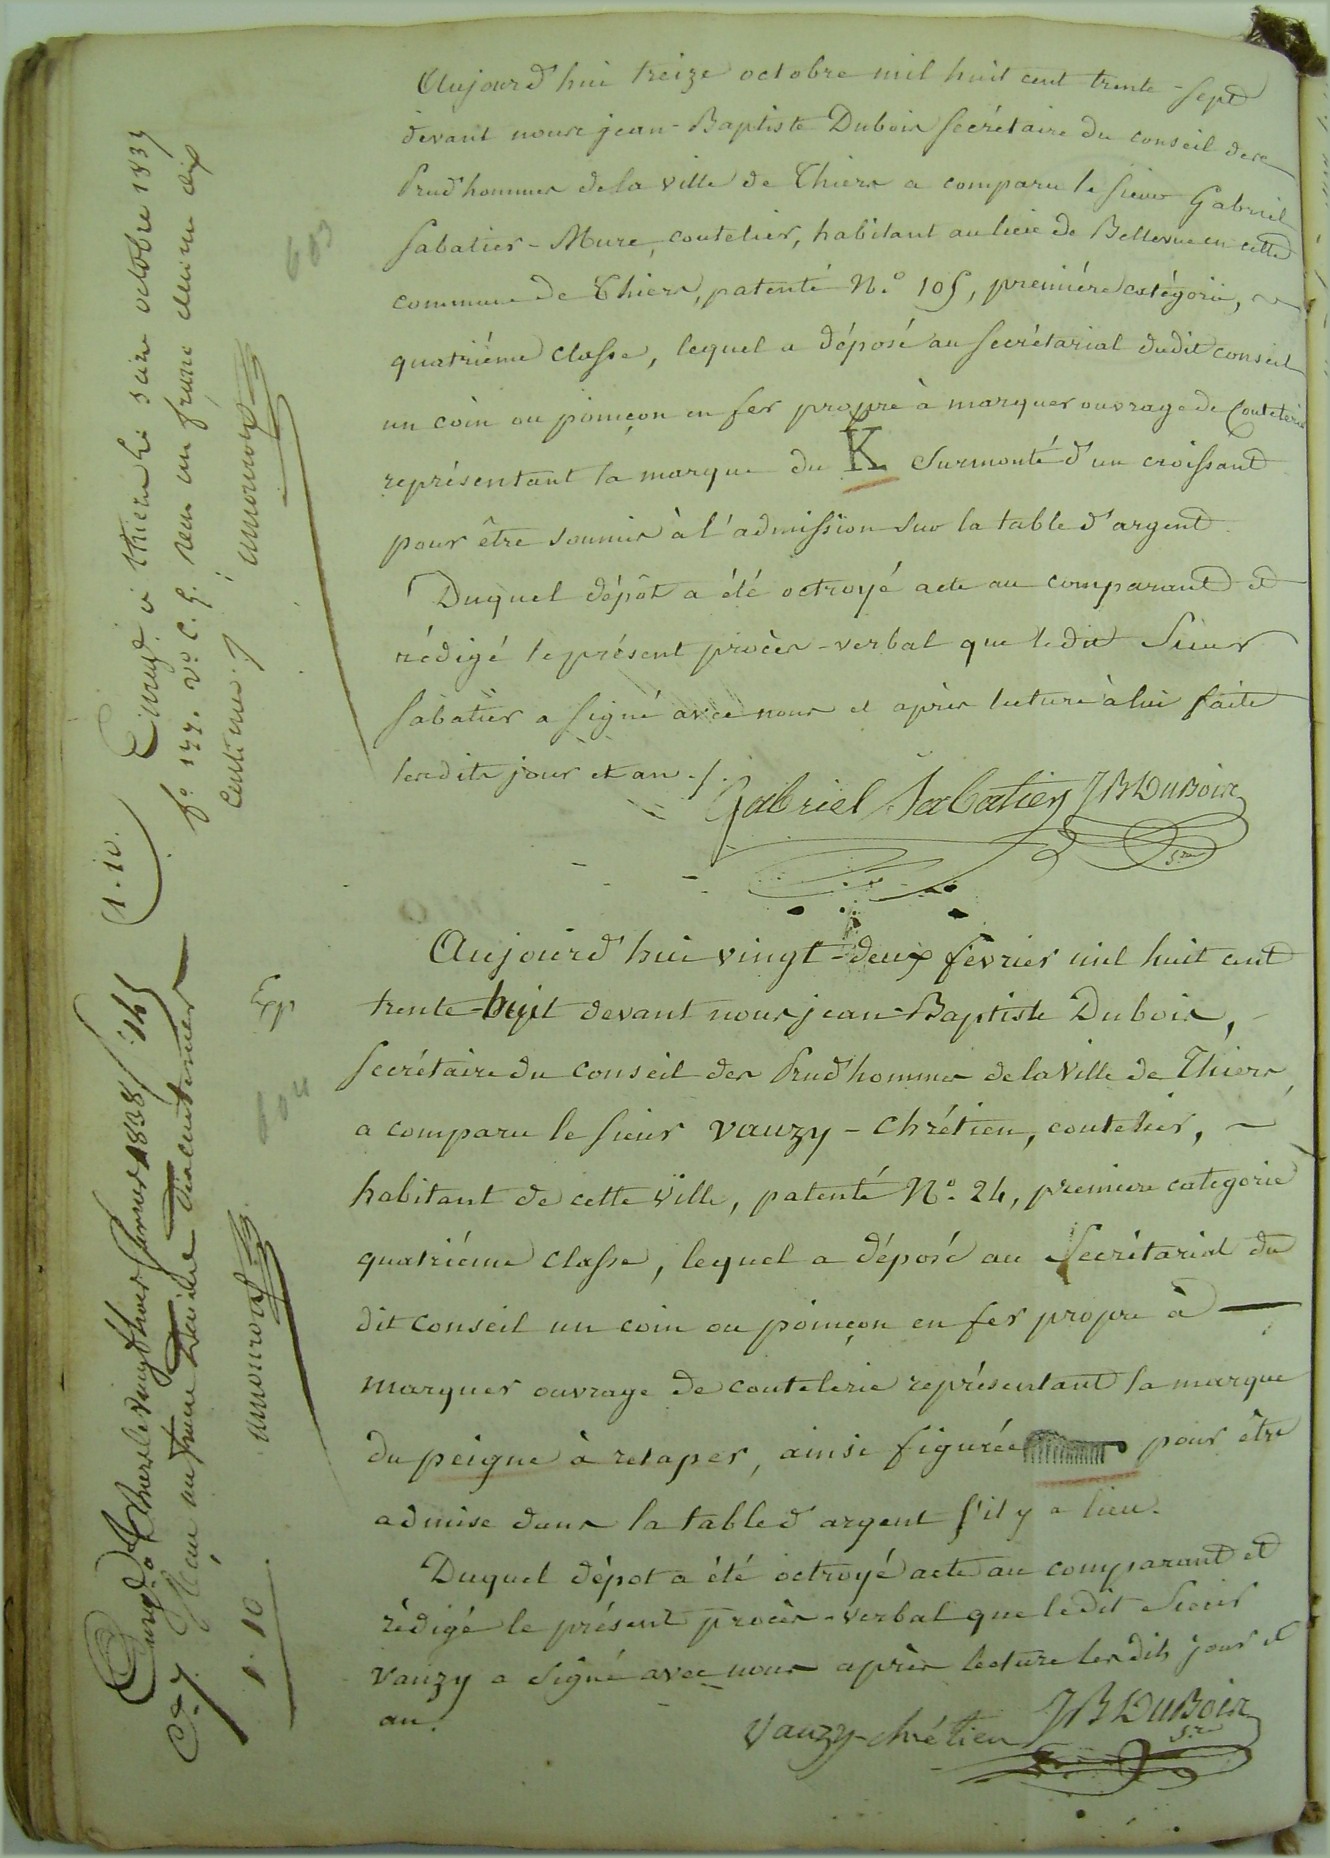 Aujourd'hui treize octobre mil huit cent trente-sept
devant nous jean-Baptiste Dubois secrétaire du conseil des
Prud'hommes de la ville de Thiers a comparu le sieur Gabriel
Sabatier-Mure, coutelier, habitant au lieu de Bellevue en cette
commune de Thiers, patenté N.° 105, première catégorie,
quatriéme classe, lequel a déposé au secrétariat dudit conseil
un coin ou poinçon en fer propre à marquer ouvrage de Coutelerie
représentant la marque du K Surmonté d'un croissant
pour être soumis à l'admission sur la table d'argent.
Duquel dépôt a été octroyé acte au comparant et
rédigé le présent procès-verbal que le dit Sieur
Sabatier a signé avec nous et après lecture à lui faite
lesdits jour et an ./.
Gabriel Sabatier JB Dubois
S.re
Aujourd'hui vingt-deux février mil huit cent
trente-huit devant nous jean-Baptiste Dubois,
Secrétaire du Conseil des Prud'hommes de la Ville de Thiers,
a comparu le sieur Vauzy-Chrétien, coutelier,
habitant de cette ville, patenté N.° 24, premiere categorie
quatriéme classe, lequel a déposé au Secrétariat du
dit Conseil un coin ou poinçon en fer propre à
marquer ouvrage de coutelerie représentant la marque
du peigne à retaper, ainsi figurée pour être
admise dans la table d'argent s'il y a lieu.
Duquel dépot a été octroyé acte au comparant et
rédigé le présent procès-verbal que le dit Sieur
Vauzy a signé avec nous après lecture les dits jour et
an.
Vauzy-chrétien JB Dubois
S.re
603
604
Enregt. à thiers le seize octobre 1837
f° 177. v° c. 5. reçu un franc decime dix
Centimes ./.
1.10.
Enregt. à Thiers le vingt
Reçu un franc
1.10